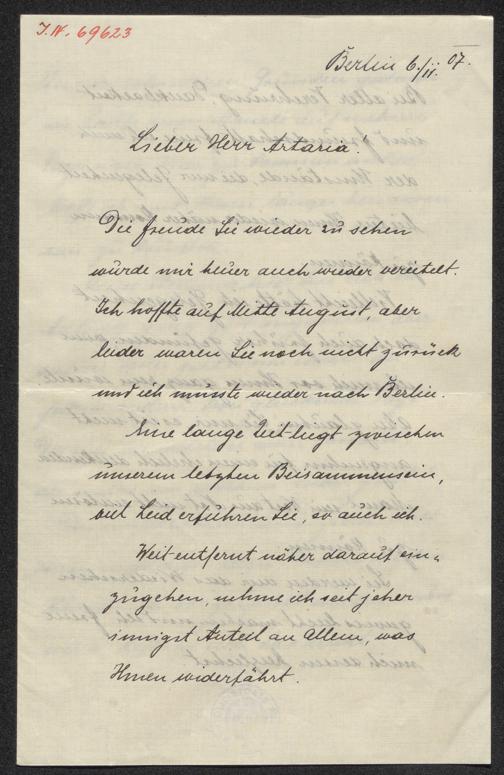 I.N. 69623
Berlin 6./11. 07.
Lieber Herr Artaria!
Die Freude Sie wieder zu sehen
wurde mir heuer auch wieder vereitelt.
Ich hoffte auf Mitte August, aber
leider waren Sie noch nicht zurück
und ich musste wieder nach Berlin.
Eine lange Zeit liegt zwischen
unserem letzten Beisammensein,
viel Leid erfuhren Sie, so auch ich.
Weit entfernt näher darauf ein-
zugehen, nehme ich seit jeher
innigst Anteil an Allem, was
Ihnen widerfährt.